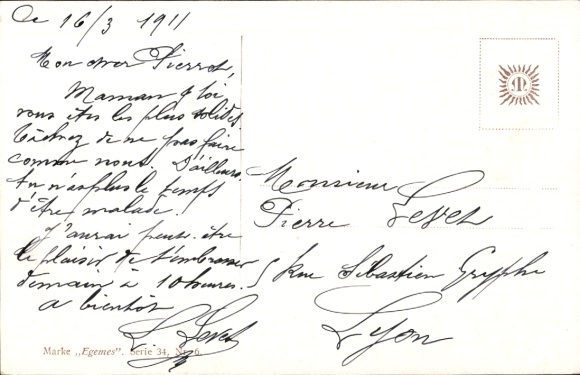 Le 16/3 1911
Mon cher Pierrot,
Maman & toi
vous êtes les plus solides.
Tâchez de ne pas faire
comme nous. D'ailleurs
tu n'as plus le temps
d'être malade.
J'aurai peut-être
le plaisir de t'embrasser
demain à 10 heures.
A bientôt
L. Level
Monsieur
Pierre Level
5 Rue Sébastien Gryphe
Lyon
Marke „Egemes". Serie 34, Nr. 6.